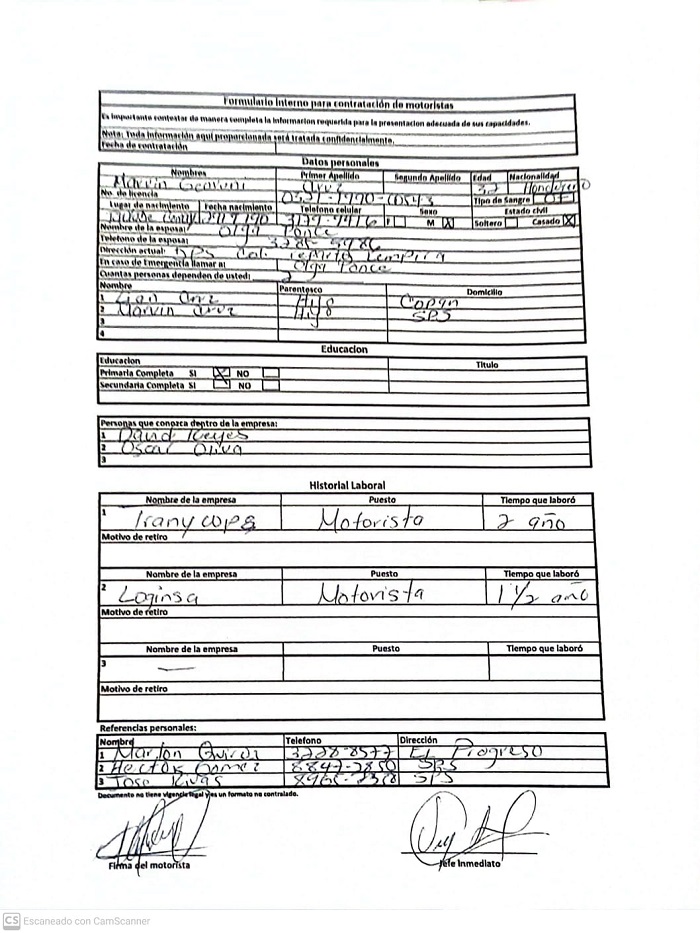 Formulario Interno para contratación de motoristas
Es importante contestar de manera completa la informacion requerida para la presentacion adecuada de sus capacidades.
Nota: Toda información aqui proporcionada será tratada confidencialmente.
Fecha de contratación
Datos personales
Nombres Primer Apellido Segundo Apellido Edad Nacionalidad
Marvin Geovani Cruz 32 Hondureño
No. de licencia Tipo de Sangre
Lugar de nacimiento Fecha nacimiento Telefono celular Sexo Estado civil
F M X Soltero Casado X
Nombre de la esposa: Olga Ponce
Telefono de la esposa:
Dirección actual: SPS Col. Lempira
En caso de Emergencia llamar a: Olga Ponce
Cuantas personas dependen de usted: 2
Nombre Parentesco Domicilio
1 Cruz Copan
2 Marvin Cruz SPS
3
4
Educacion
Educacion Titulo
Primaria Completa SI X NO
Secundaria Completa SI NO
Personas que conozca dentro de la empresa:
1 David Reyes
2 Oscar Oliva
3
Historial Laboral
Nombre de la empresa Puesto Tiempo que laboró
1 Motorista 2 año
Motivo de retiro
Nombre de la empresa Puesto Tiempo que laboró
2 Loginsa Motorista 1 1/2 año
Motivo de retiro
Nombre de la empresa Puesto Tiempo que laboró
3 —
Motivo de retiro
Referencias personales:
Nombre Telefono Dirección
1 Marlon 3228-8577 El Progreso
2 Hector Gomez 8847-2850 SPS
3 Jose Rivas SPS
Documento no tiene vigencia legal y es un formato no contralado.
Firma del motorista Jefe Inmediato
CS Escaneado con CamScanner